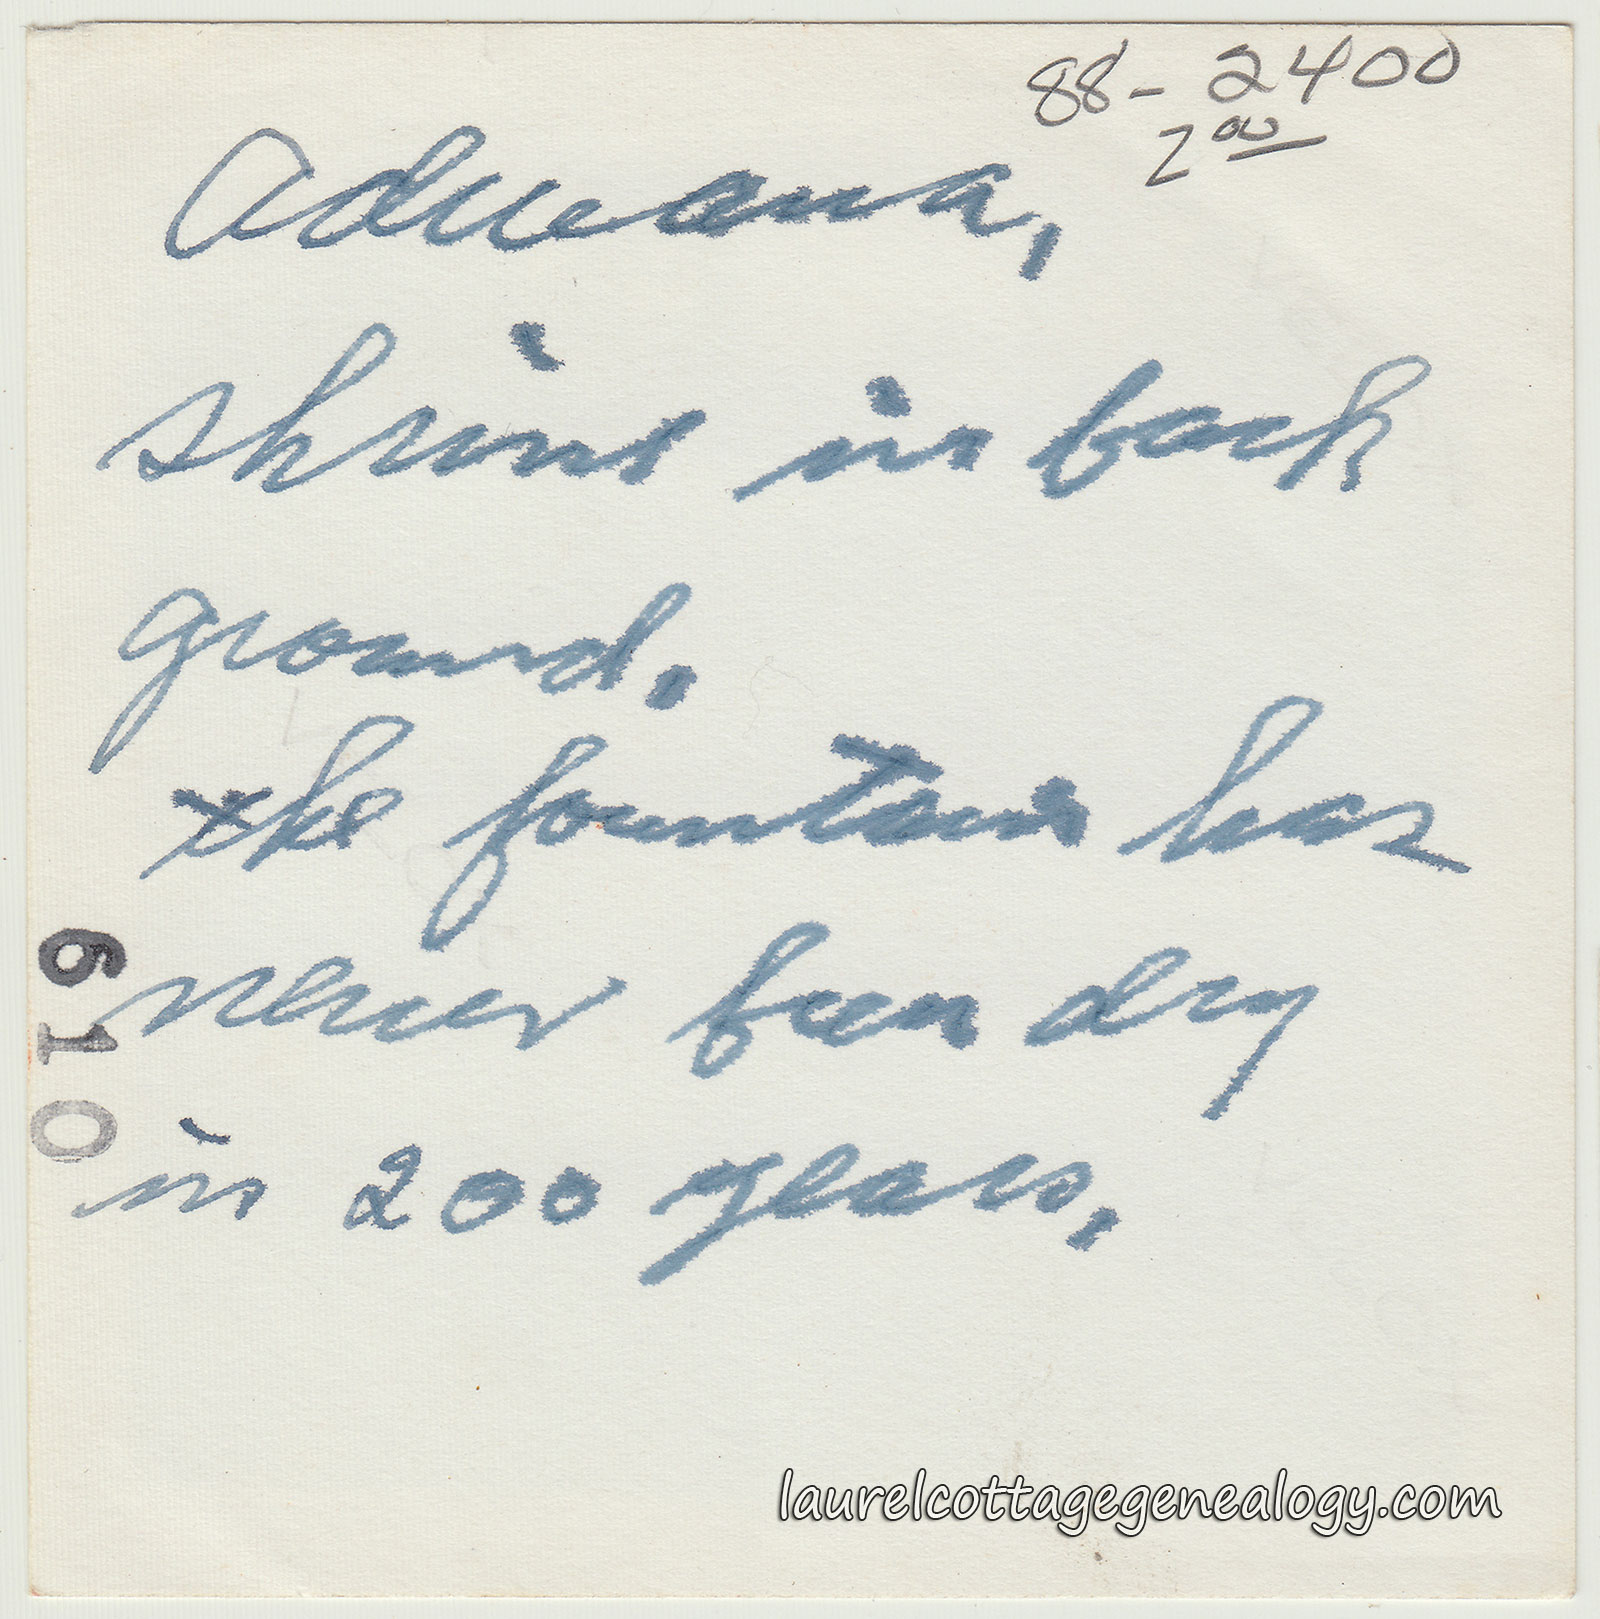 88-2400
2 00
Adreana,
shrine in back
ground.
the fountain has
never been dry
in 200 years.
610
laurelcottagegenealogy.com